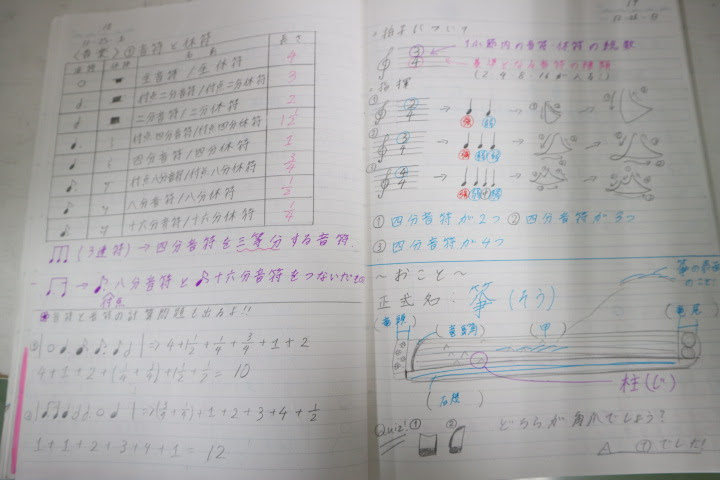 19
〈音楽〉①音符と休符
音符 休符 名前 長さ
全音符/全休符 4
付点二分音符/付点二分休符 3
二分音符/二分休符 2
付点四分音符/付点四分休符 1 1/2
四分音符/四分休符 1
付点八分音符/付点八分休符 3/4
八分音符/八分休符 1/2
十六分音符/十六分休符 1/4
(3連符)→四分音符を三等分する音符.
→ 八分音符と 十六分音符をつないだもの
付点
音符と音符の計算問題も出るよ!!
⇒ 4+1 1/2+1/4+3/4+1+2
4+1+2+(1/4+3/4)+1 1/2+1/2=10
+1+2+3+4+1/2
1+1+2+3+4+1=12
19
・拍子について
3 ← 1小節内の音符・休符の総数
4 ← 基準となる音符の種類
(2・4・8・16が入る!)
・指揮
① 2/4 → 強 弱 → →
② 3/4 → 強 弱 弱 → →
③ 4/4 → → →
①四分音符が2つ ②四分音符が3つ
③四分音符が4つ
~おこと~
正式名:箏(そう)
(竜頭) (竜角) (甲) (竜尾)
柱(じ)
(磯)
Quiz! ① ② どちらが角爪でしょう?
A ①でした!